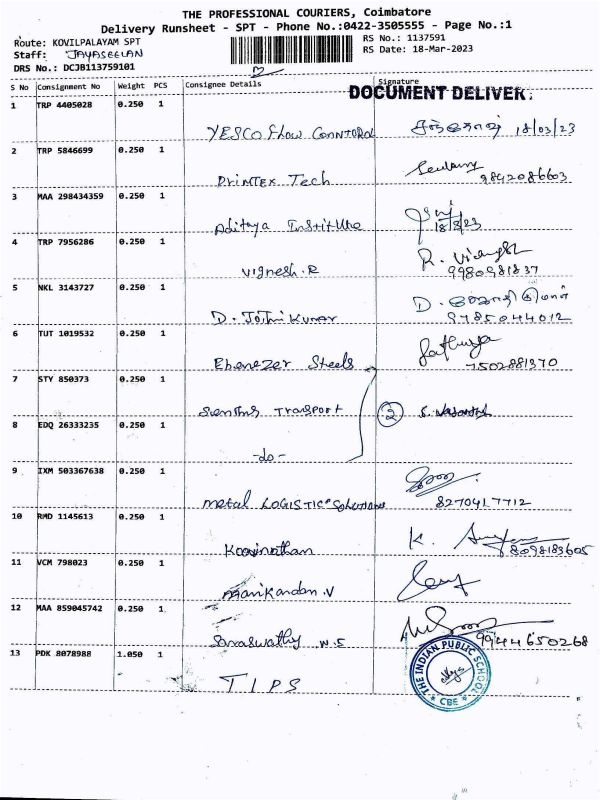 THE PROFESSIONAL COURIERS, Coimbatore
Delivery Runsheet - SPT - Phone No.:0422-3505555 - Page No.:1
Route: KOVILPALAYAM SPT RS No.: 1137591
Staff: JAYASEELAN RS Date: 18-Mar-2023
DRS No.: DCJB113759101
S No Consignment No Weight PCS Consignee Details Signature
DOCUMENT DELIVER.
1 TRP 4405028 0.250 1
YESCO Flow 18/03/23
2 TRP 5846699 0.250 1
Primtex Tech 9842086603
3 MAA 298434359 0.250 1
Aditya Institute 18/3/23
4 TRP 7956286 0.250 1
Vignesh.R R. 9980981837
5 NKL 3143727 0.250 1
D. Jothi Kumar D. ஜோதிகுமார்
9785044012
6 TUT 1019532 0.250 1
Ebenezer Steels 7502881370
7 STY 850373 0.250 1
Transport 2
8 EDQ 26333235 0.250 1
-do-
9 IXM 503367638 0.250 1
Metal LOGISTIC Solutions 8270417712
10 RMD 1145613 0.250 1
K. 8098183605
11 VCM 798023 0.250 1
Manikandan.V
12 MAA 859045742 0.250 1
Saraswathy N.S 9944650268
13 PDK 8078988 1.050 1
TIPS
THE INDIAN PUBLIC SCHOOL
CBE